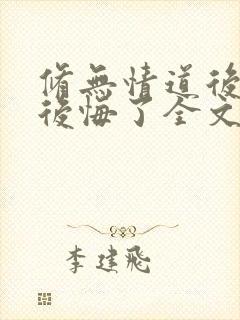 脩無情道後
後悔了全文
李建飛